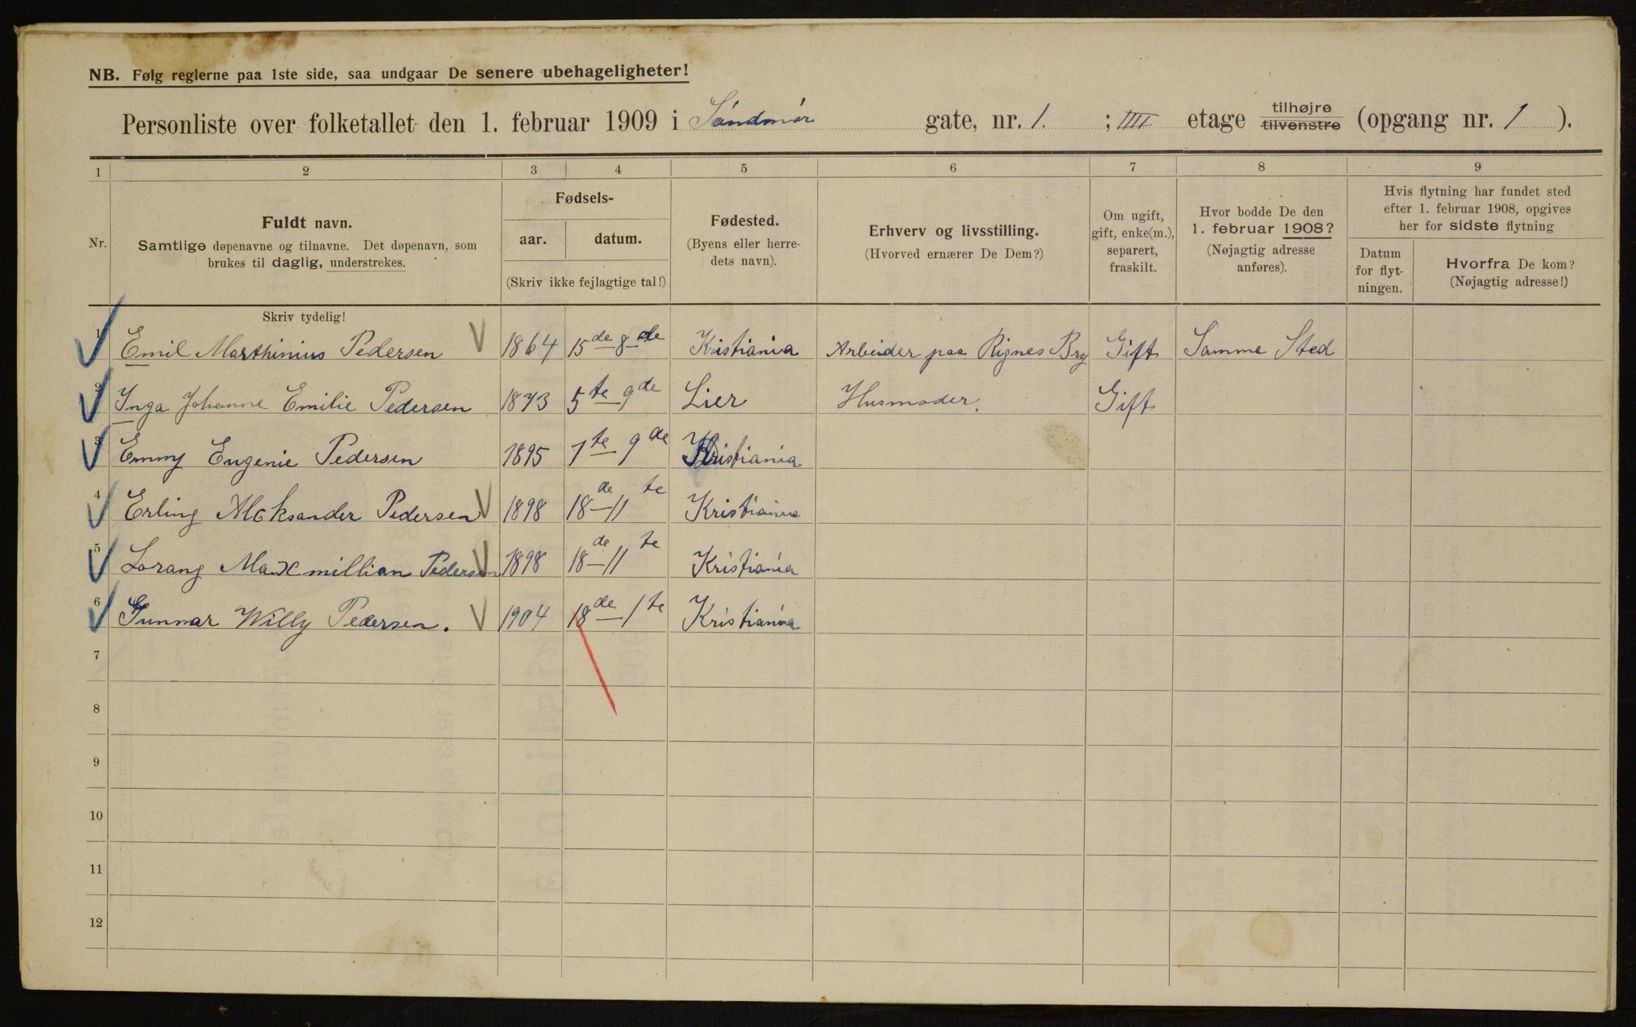 NB. Følg reglerne paa 1ste side, saa undgaar De senere ubehageligheter!
Personliste over folketallet den 1. februar 1909 i Søndmør gate, nr. 1. ; IIII etage tilhøjre tilvenstre (opgang nr. 1 ).
1 2 3 4 5 6 7 8 9
Nr.
Fuldt navn.
Samtlige døpenavne og tilnavne. Det døpenavn, som
brukes til daglig, understrekes.
Fødsels-
aar. datum.
(Skriv ikke fejlagtige tal!)
Fødested.
(Byens eller herre-
dets navn).
Erhverv og livsstilling.
(Hvorved ernærer De Dem?)
Om ugift,
gift, enke(m.),
separert,
fraskilt.
Hvor bodde De den
1. februar 1908?
(Nøjagtig adresse
anføres).
Hvis flytning har fundet sted
efter 1. februar 1908, opgives
her for sidste flytning
Datum
for flyt-
ningen.
Hvorfra De kom?
(Nøjagtig adresse!)
Skriv tydelig!
1 Emil Marthinius Pedersen 1864 15de 8de Kristiania Arbeider paa Rignes Bry Gift Samme Sted
2 Inga Johanne Emilie Pedersen 1873 5te 9de Lier Husmoder. Gift
3 Emmy Eugenie Pedersen 1895 7te 9de Kristiania
4 Erling Aleksander Pedersen 1898 18de-11te Kristiania
5 Lorang Maxmillian Pedersen 1898 18de-11te Kristiania
6 Gunnar Willy Pedersen. 1904 18de-1te Kristiania
7
8
9
10
11
12